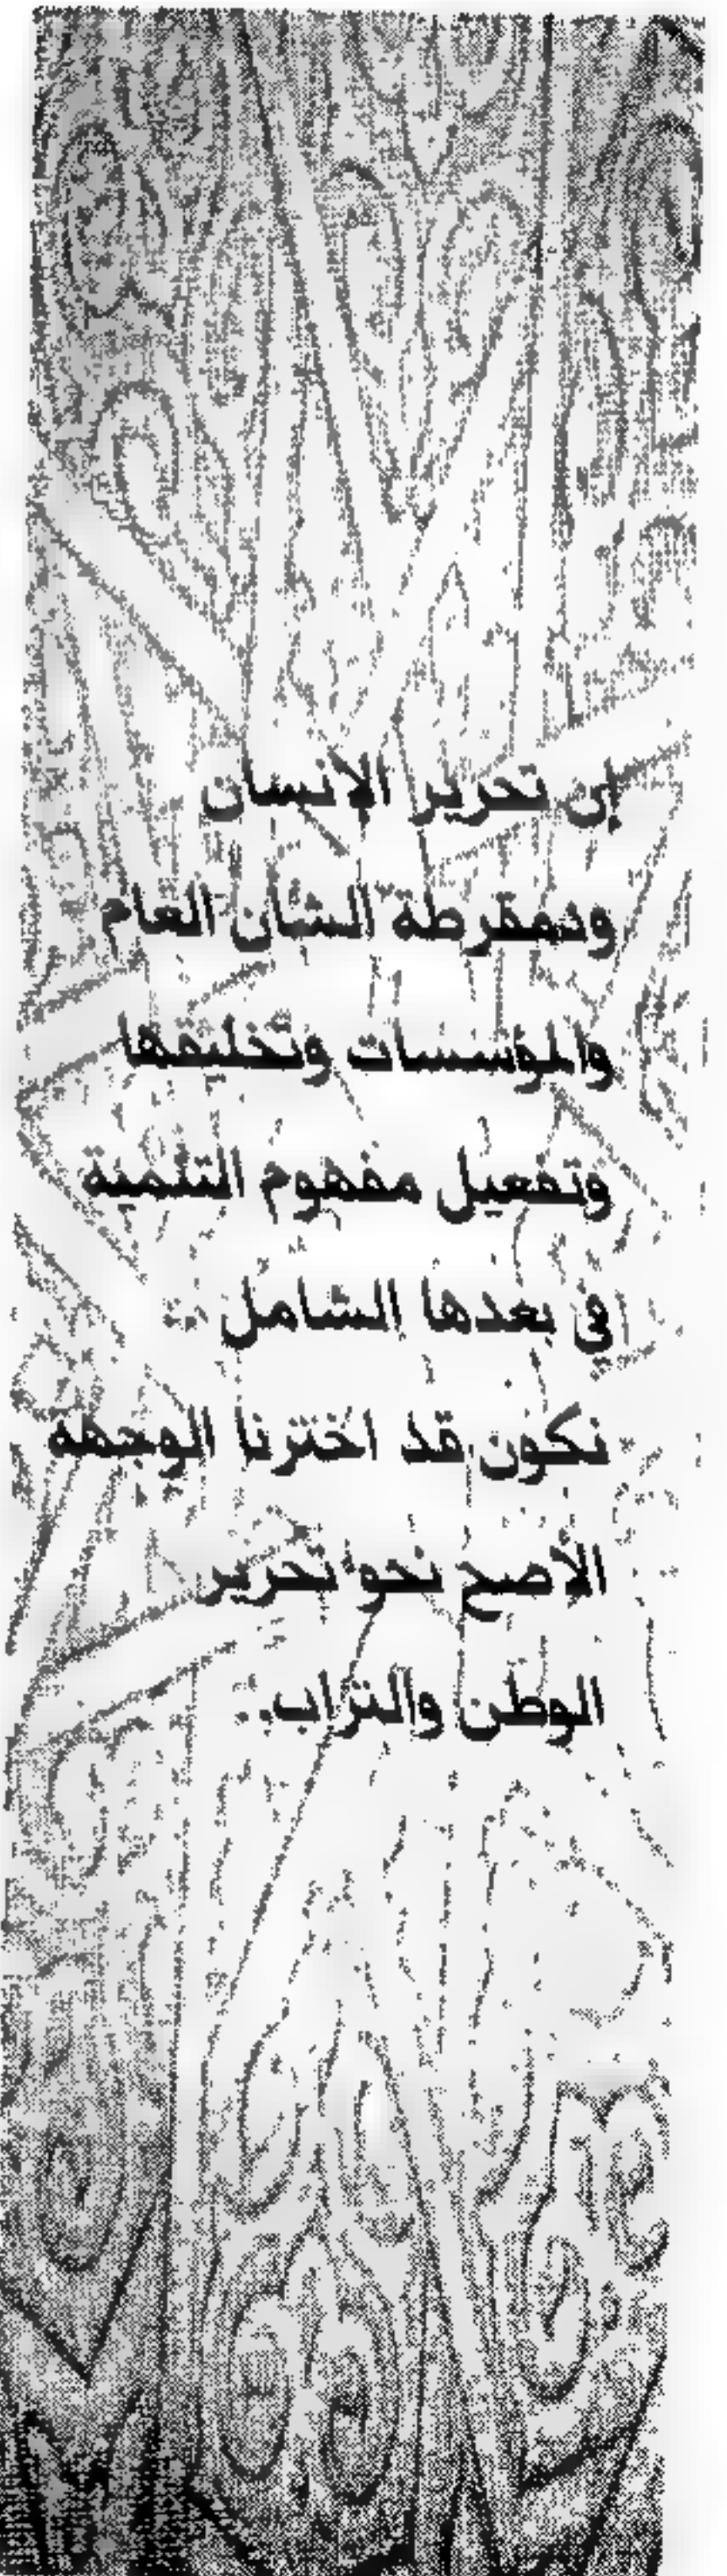 إن تحرير الانسان
ودمقرطة الشأن العام
والمؤسسات وتخليقها
وتفعيل مفهوم التنمية
في بعدها الشامل
نكون قد اخترنا الوجهة
الأصح نحو تحرير
الوطن والتراب..